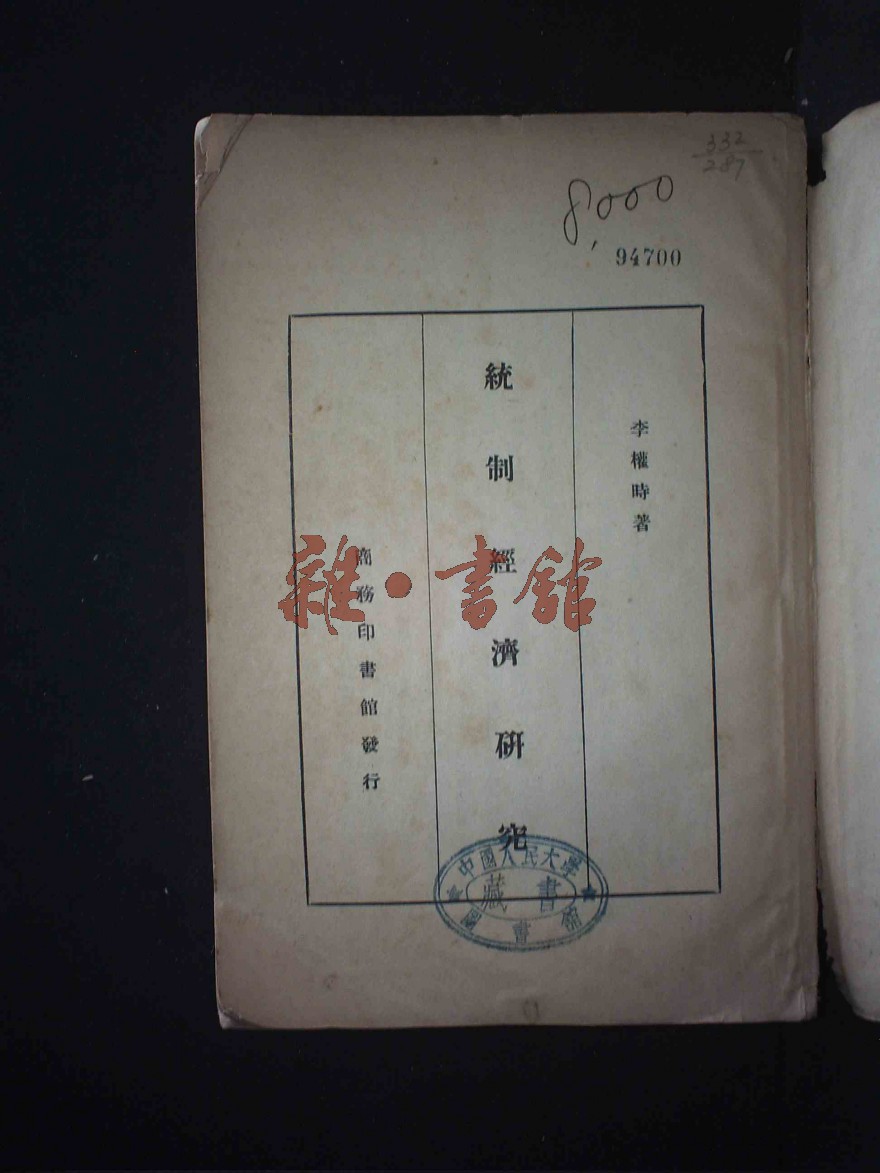 332
287
8,000
94700
李權時著
統制經濟研究
商務印書館發行
雜·書館
中國人民大學
藏書
圖書館